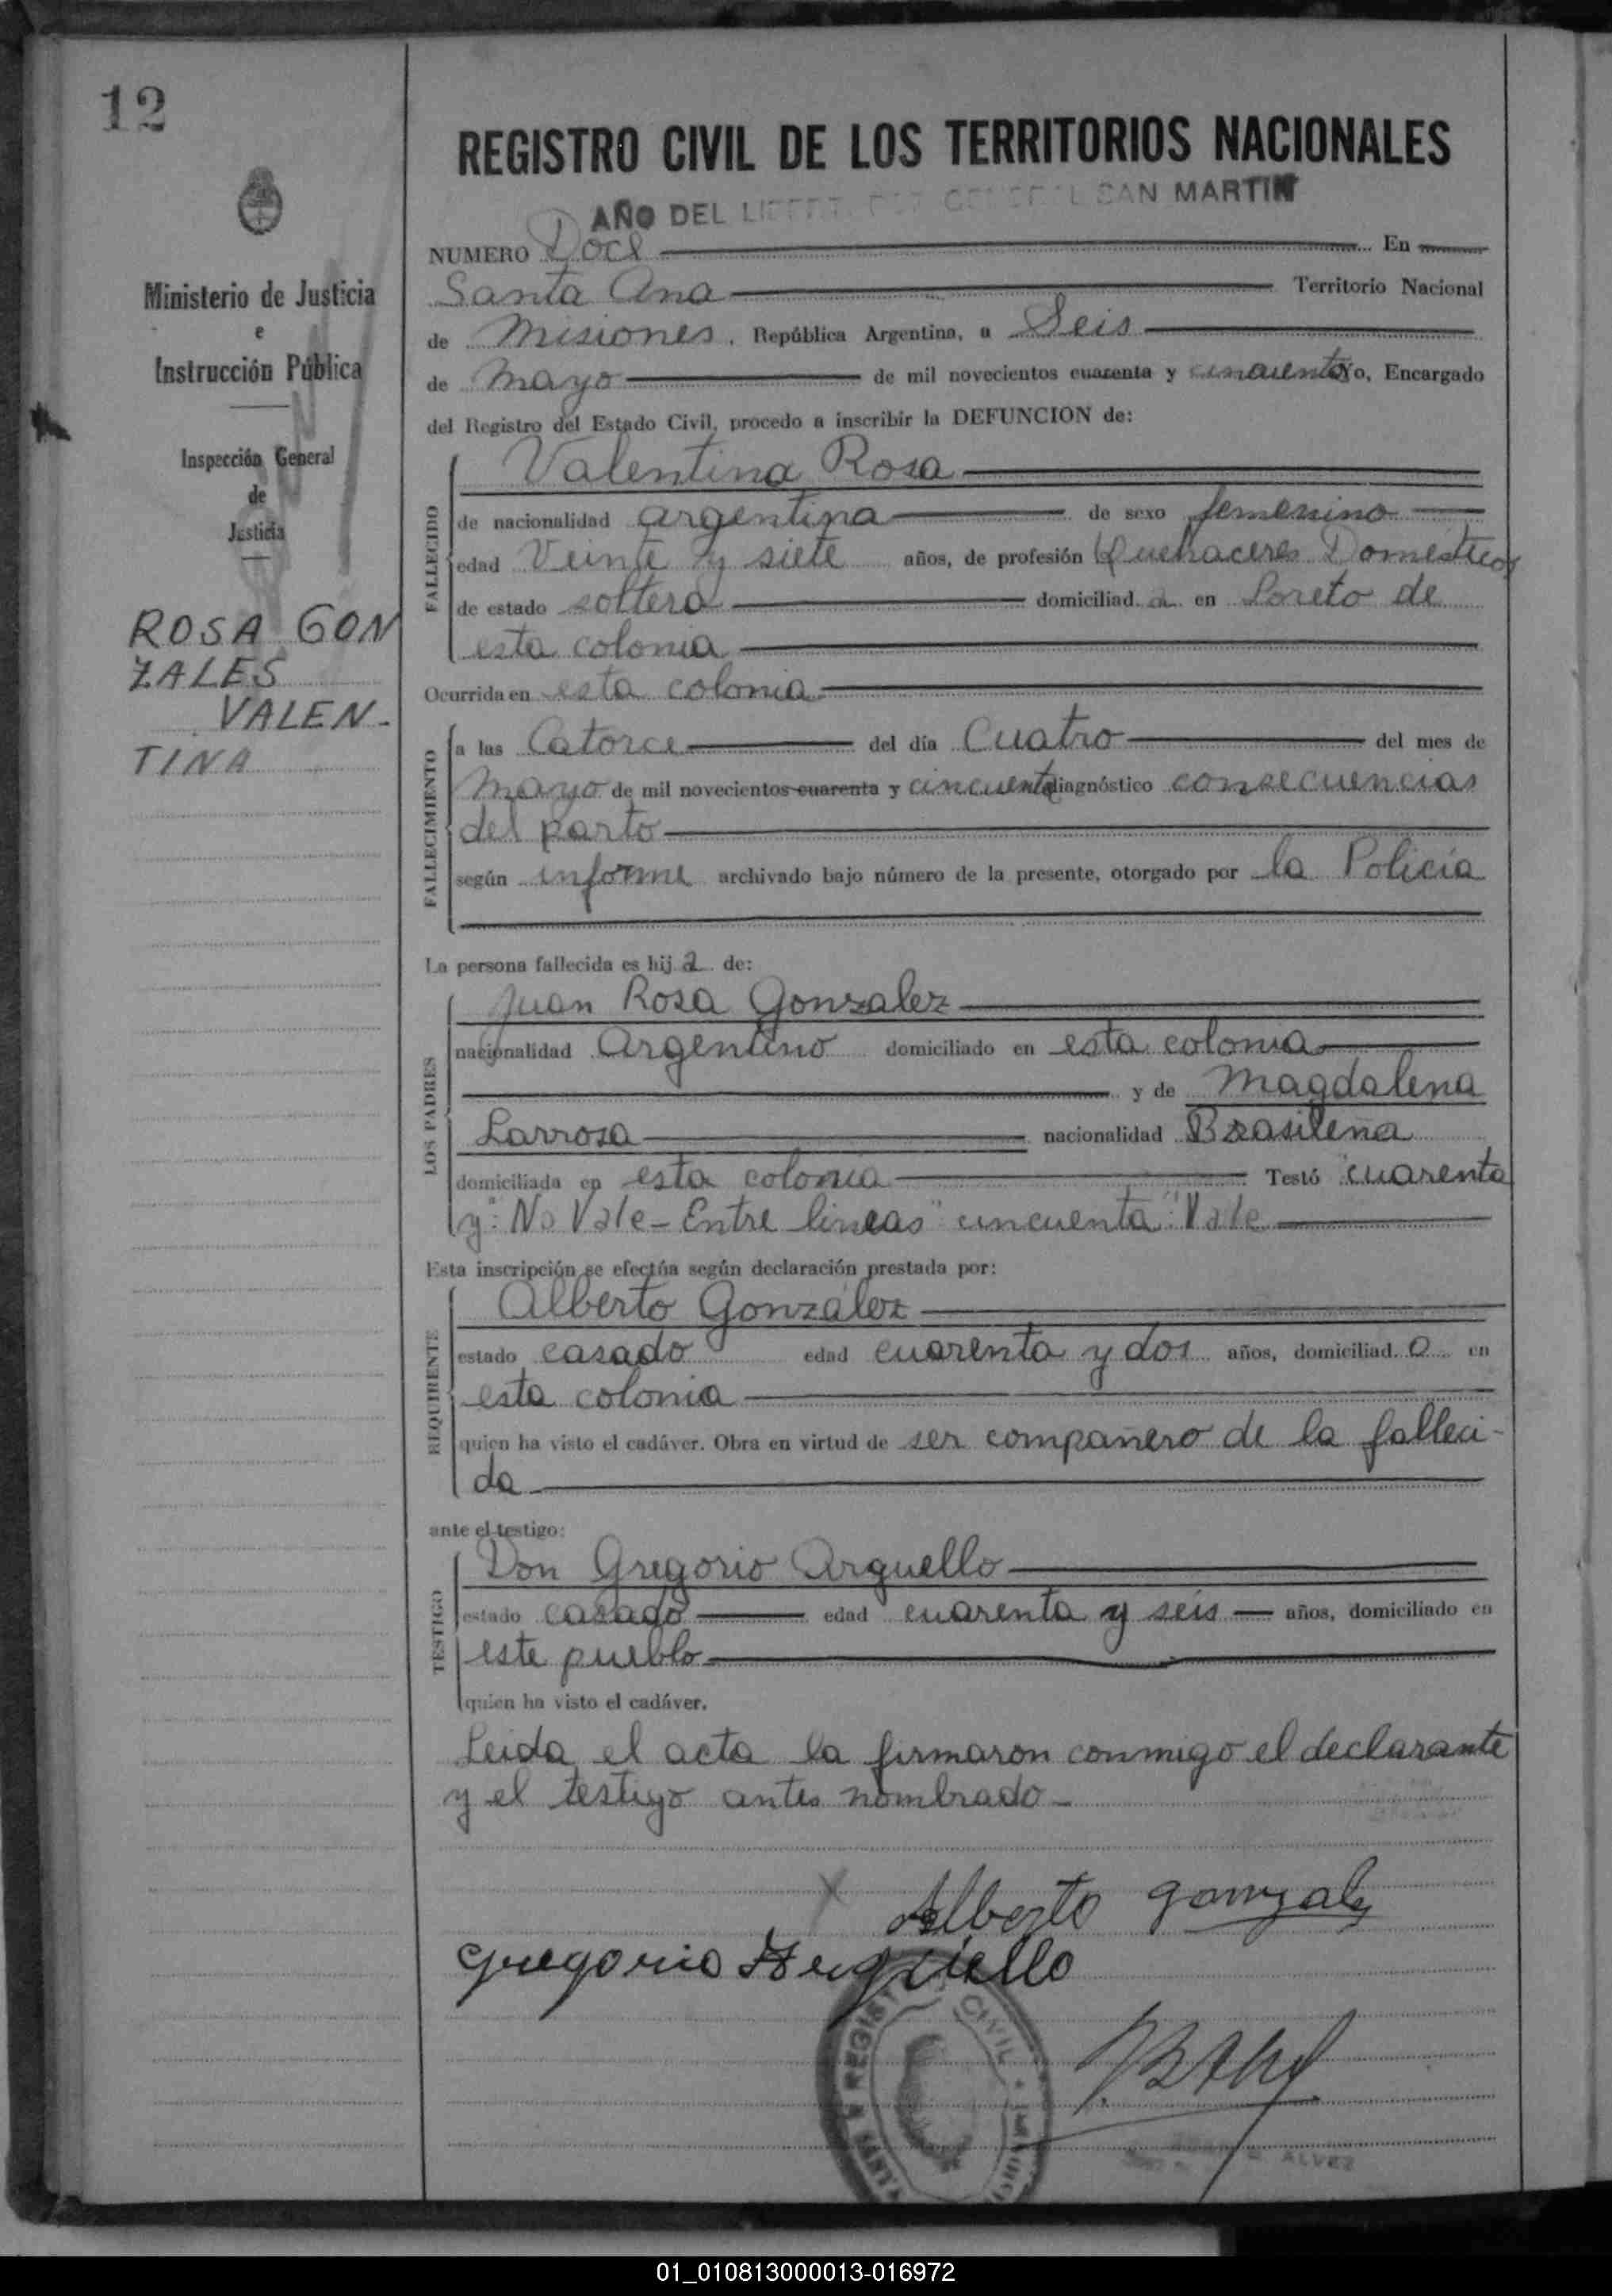 12
Ministerio de Justicia
e
Instrucción Pública
Inspección General
de
Justicia
ROSA GON
ZALES
VALEN-
TINA
REGISTRO CIVIL DE LOS TERRITORIOS NACIONALES
AÑO DEL LIBERT GENERAL SAN MARTIN
NUMERO Doce En
Santa Ana Territorio Nacional
de Misiones, República Argentina, a Seis
de Mayo de mil novecientos cuarenta y cincuenta Yo, Encargado
del Registro del Estado Civil, procedo a inscribir la DEFUNCION de:
Valentina Rosa
FALLECIDO
de nacionalidad argentina de sexo femenino
edad Veinte y siete años, de profesión Quehaceres Domésticos
de estado soltera domiciliad a en Loreto de
esta colonia
Ocurrida en esta colonia
FALLECIMIENTO
a las Catorce del día Cuatro del mes de
Mayo de mil novecientos cuarenta y cincuenta diagnóstico consecuencias
del parto
según informe archivado bajo número de la presente, otorgado por la Policía
La persona fallecida es hij a de:
LOS PADRES
Juan Rosa Gonzalez
nacionalidad Argentino domiciliado en esta colonia
y de Magdalena
Larrosa nacionalidad Brasileña
domiciliada en esta colonia Testó "cuarenta
y" No Vale - Entre lineas "cincuenta" Vale
Esta inscripción se efectúa según declaración prestada por:
REQUIRENTE
Alberto González
estado casado edad cuarenta y dos años, domiciliad o en
esta colonia
quien ha visto el cadáver. Obra en virtud de ser compañero de la falleci-
da
ante el testigo:
TESTIGO
Don Gregorio Arguello
estado casado edad cuarenta y seis años, domiciliado en
este pueblo
quien ha visto el cadáver.
Leida el acta la firmaron conmigo el declarante
y el testigo antes nombrado-
Alberto Gonzalez
Gregorio Argüello
REGISTRO CIVIL
ALVEZ
01_010813000013-016972